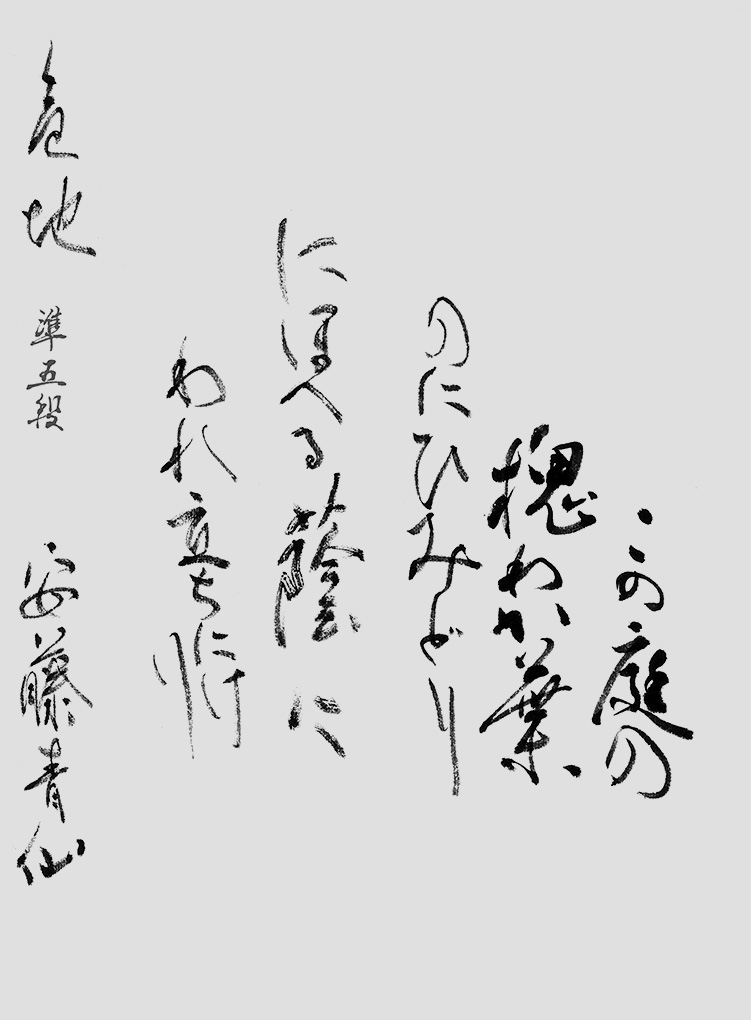 この庭の
槐わか葉
のにひみどり
にほへる蔭に
われ立ちにけり
準五段
安藤青仙